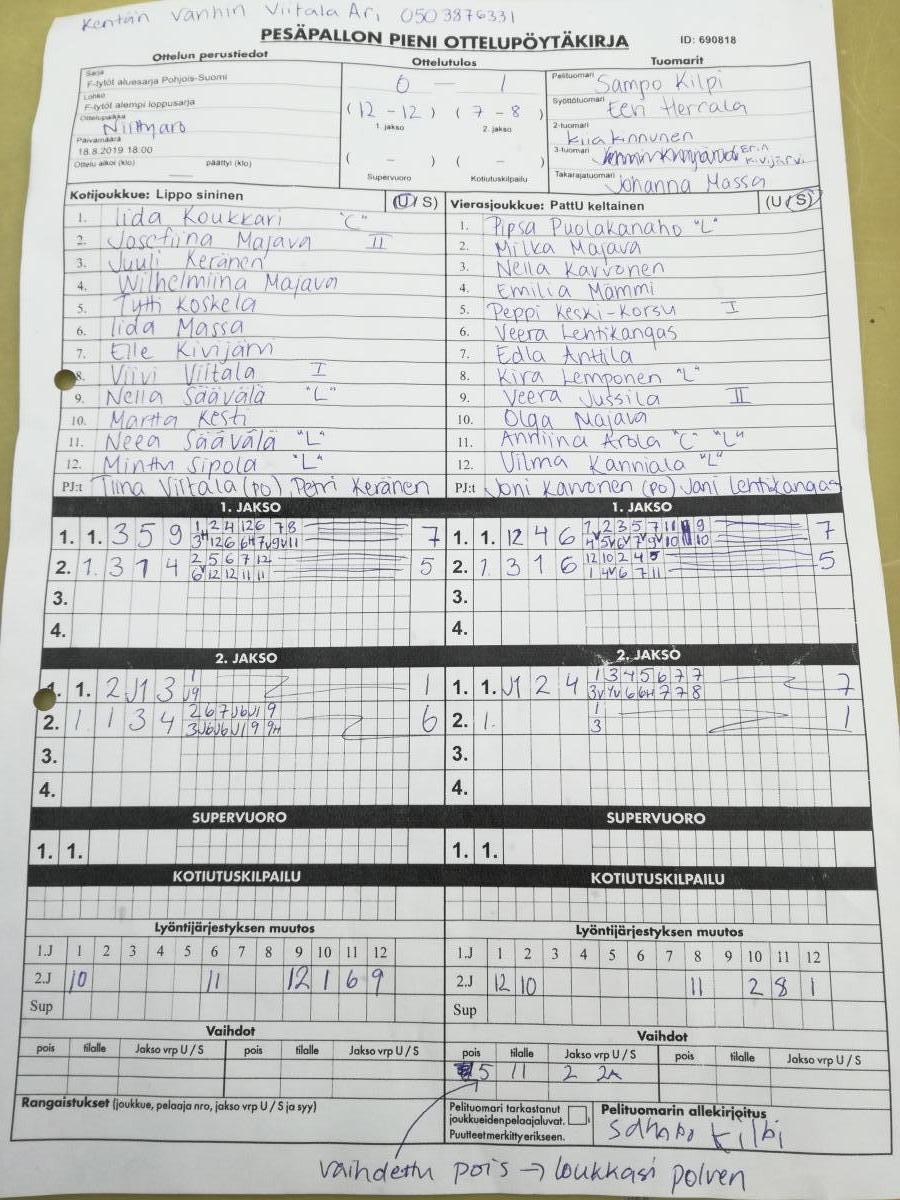 Kentän vanhin Viitala Ari 0503876331
PESÄPALLON PIENI OTTELUPÖYTÄKIRJA ID: 690818
Ottelun perustiedot Ottelutulos Tuomarit
Sarja
F-tytöt aluesarja Pohjois-Suomi
Lohko
F-tytöt alempi loppusarja
Ottelupaikka
Niittyaro
Päivämäärä
18.8.2019 18:00
Ottelu alkoi (klo) päättyi (klo)
0 - 1
(12 - 12) (7 - 8)
1. jakso 2. jakso
( - ) ( - )
Supervuoro Kotiutuskilpailu
Pelituomari Sampo Kilpi
Syöttötuomari Eeri Hercala
2-tuomari Kiia Kinnunen
3-tuomari Erin Kivijärvi
Takarajatuomari Johanna Massa
Kotijoukkue: Lippo sininen (U/S)
1. Iida Koukkari "C"
2. Josefiina Majava II
3. Juuli Keränen
4. Wilhelmiina Majava
5. Tytti Koskela
6. Iida Massa
7. Elle Kivijärvi
8. Viivi Viitala I
9. Nella Säävälä "L"
10. Martta Kesti
11. Neea Säävälä "L"
12. Minttu Sipola "L"
PJ:t Tiina Viitala (po), Petri Keränen
Vierasjoukkue: PattU keltainen (U/S)
1. Pipsa Puolakanaho "L"
2. Milka Majava
3. Nella Karvonen
4. Emilia Mämmi
5. Peppi Keski-Korsu I
6. Veera Lehtikangas
7. Edla Anttila
8. Kira Lemponen "L"
9. Veera Jussila II
10. Olga Majava
11. Anniina Arola "C" "L"
12. Vilma Kanniala "L"
PJ:t Joni Karvonen (po) Jani Lehtikangas
1. JAKSO 1. JAKSO
1. 1. 3 5 9 1 2 4 12 6 7 8 7
2. 1. 3 1 4 2 5 6 7 12 5
6v 12 12 11 11
3.
4.
1. 1. 12 4 6 1 2 3 5 7 11 9 7
2. 1. 3 1 6 12 10 2 4 5 5
1 4v 6 7 11
3.
4.
2. JAKSO 2. JAKSO
1. 1. 2 J1 3 1 1
J9
2. 1 1 3 4 2 6 7 J6 J1 9 6
3 J6 J6 J1 9 9H
3.
4.
1. 1. J1 2 4 1 3 4 5 6 7 7 7
3v 4v 6 6H 7 7 8
2. 1. 1 1
3
3.
4.
SUPERVUORO SUPERVUORO
1. 1. 1. 1.
KOTIUTUSKILPAILU KOTIUTUSKILPAILU
Lyöntijärjestyksen muutos Lyöntijärjestyksen muutos
1.J 1 2 3 4 5 6 7 8 9 10 11 12
2.J 10 11 12 1 6 9
Sup
1.J 1 2 3 4 5 6 7 8 9 10 11 12
2.J 12 10 11 2 8 1
Sup
Vaihdot Vaihdot
pois tilalle Jakso vrp U / S pois tilalle Jakso vrp U / S
pois tilalle Jakso vrp U / S pois tilalle Jakso vrp U / S
5 11 2 2A
Rangaistukset (joukkue, pelaaja nro, jakso vrp U / S ja syy)
Pelituomari tarkastanut
joukkueidenpelaajaluvat.
Puutteet merkitty erikseen.
Pelituomarin allekirjoitus
Sampo Kilpi
vaihdettu pois → loukkasi polven